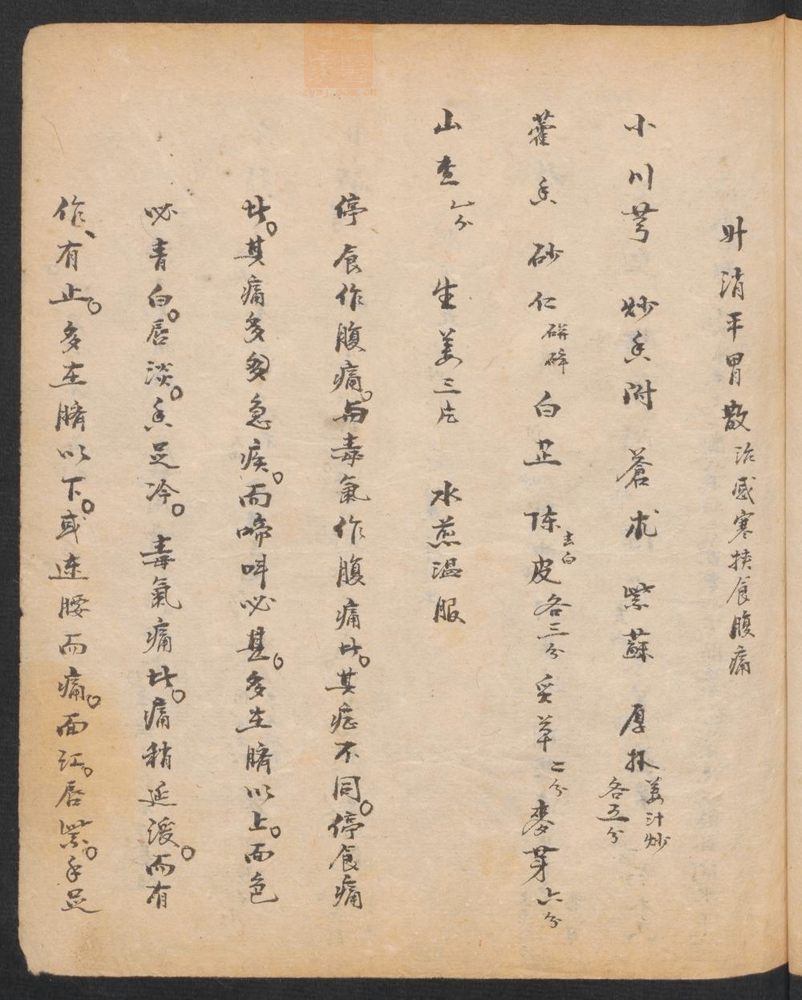 升消平胃散治感寒挾食腹痛
小川芎 炒香附 蒼朮 紫蘇 厚朴姜汁炒各五分
藿香 砂仁研碎 白芷 陈皮去白各三分 炙草二分 麥芽六分
山查八分 生姜三片 水煎温服
停食作腹痛。与毒氣作腹痛者。其症不同。停食痛
者。其痛多多急疾。而啼叫必甚。多在臍以上。面色
必青白。唇淡。手足冷。毒氣痛者。痛稍延漫。而有
作、有止。多在臍以下。或連腰而痛。面红。唇紫。手足